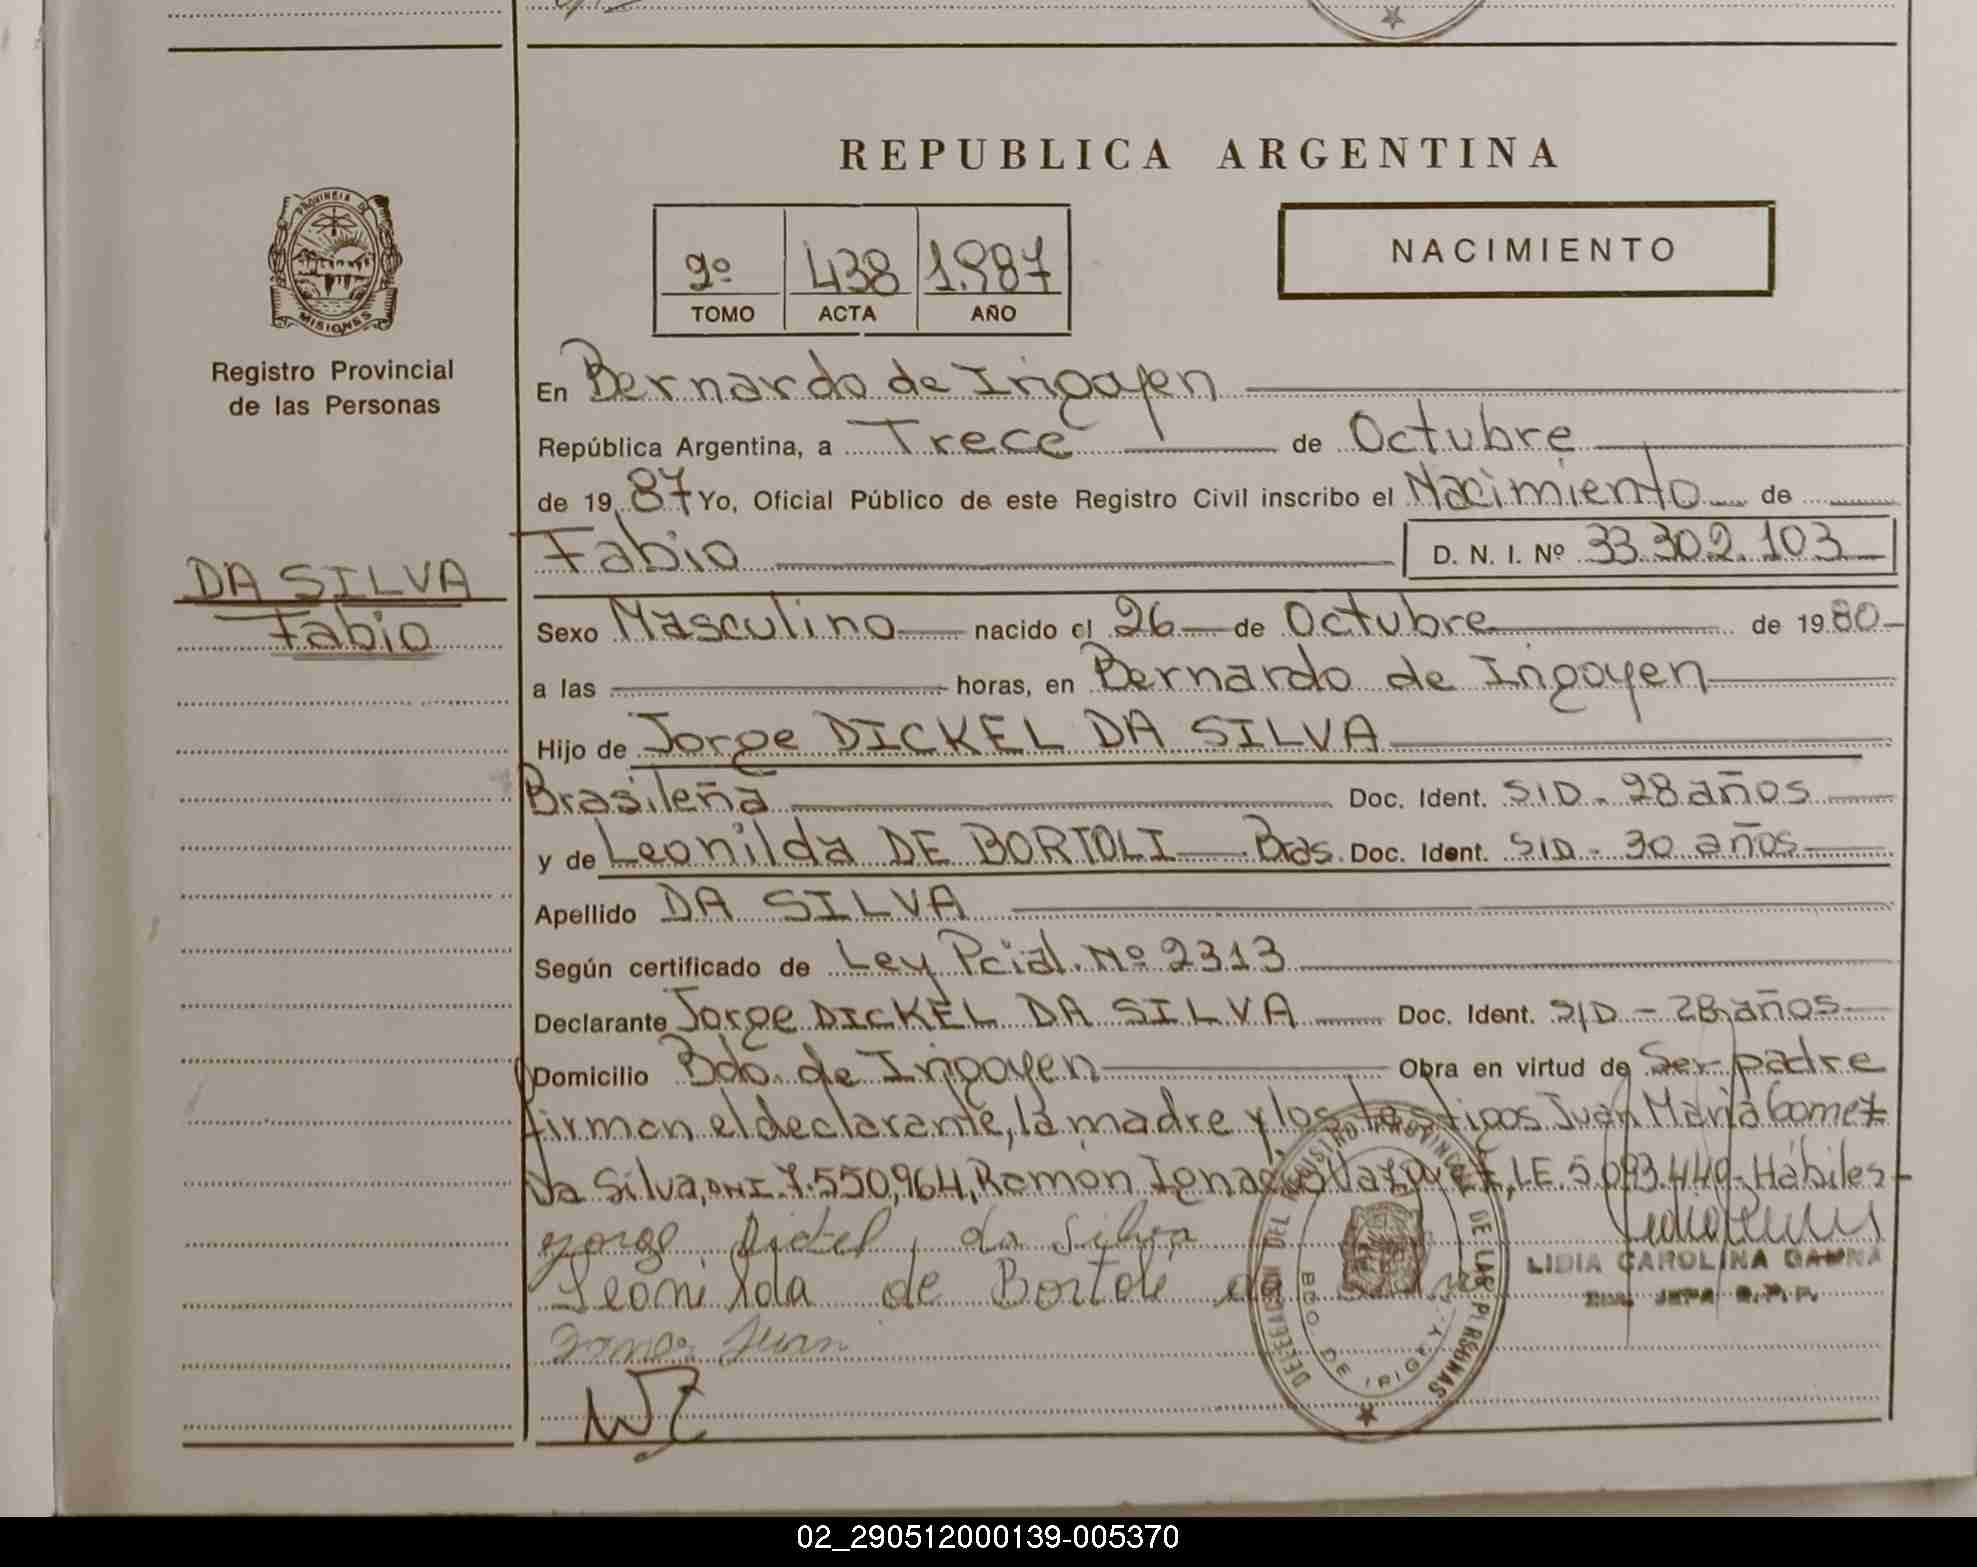 REPUBLICA ARGENTINA
PROVINCIA DE
MISIONES
Registro Provincial
de las Personas
2º 438 1.987
TOMO ACTA AÑO
NACIMIENTO
En Bernardo de Irigoyen
República Argentina, a Trece de Octubre
de 19 87 Yo, Oficial Público de este Registro Civil inscribo el Nacimiento de
Fabio D. N. I. Nº 33.302.103
DA SILVA
Fabio
Sexo Masculino nacido el 26 de Octubre de 19 80
a las horas, en Bernardo de Irigoyen
Hijo de Jorge DICKEL DA SILVA
Brasileña Doc. Ident. S/D - 28 años
y de Leonilda DE BORTOLI Bras. Doc. Ident. S/D - 30 años
Apellido DA SILVA
Según certificado de Ley Pcial. Nº 2313
Declarante Jorge DICKEL DA SILVA Doc. Ident. S/D - 28 años
Domicilio Bdo. de Irigoyen Obra en virtud de Ser padre
firman el declarante, la madre y los testigos Juan Maria Gomez
Da Silva, DNI. 7.550,964, Ramón Ignacio Vazquez, L.E. 5.093.449- Hábiles-
Jorge Dickel da Silva
Leonilda de Bortoli da
Juan
DELEGACION DEL REGISTRO PROVINCIAL DE LAS PERSONAS
BDO. DE IRIGOYEN
LIDIA CAROLINA
02_290512000139-005370